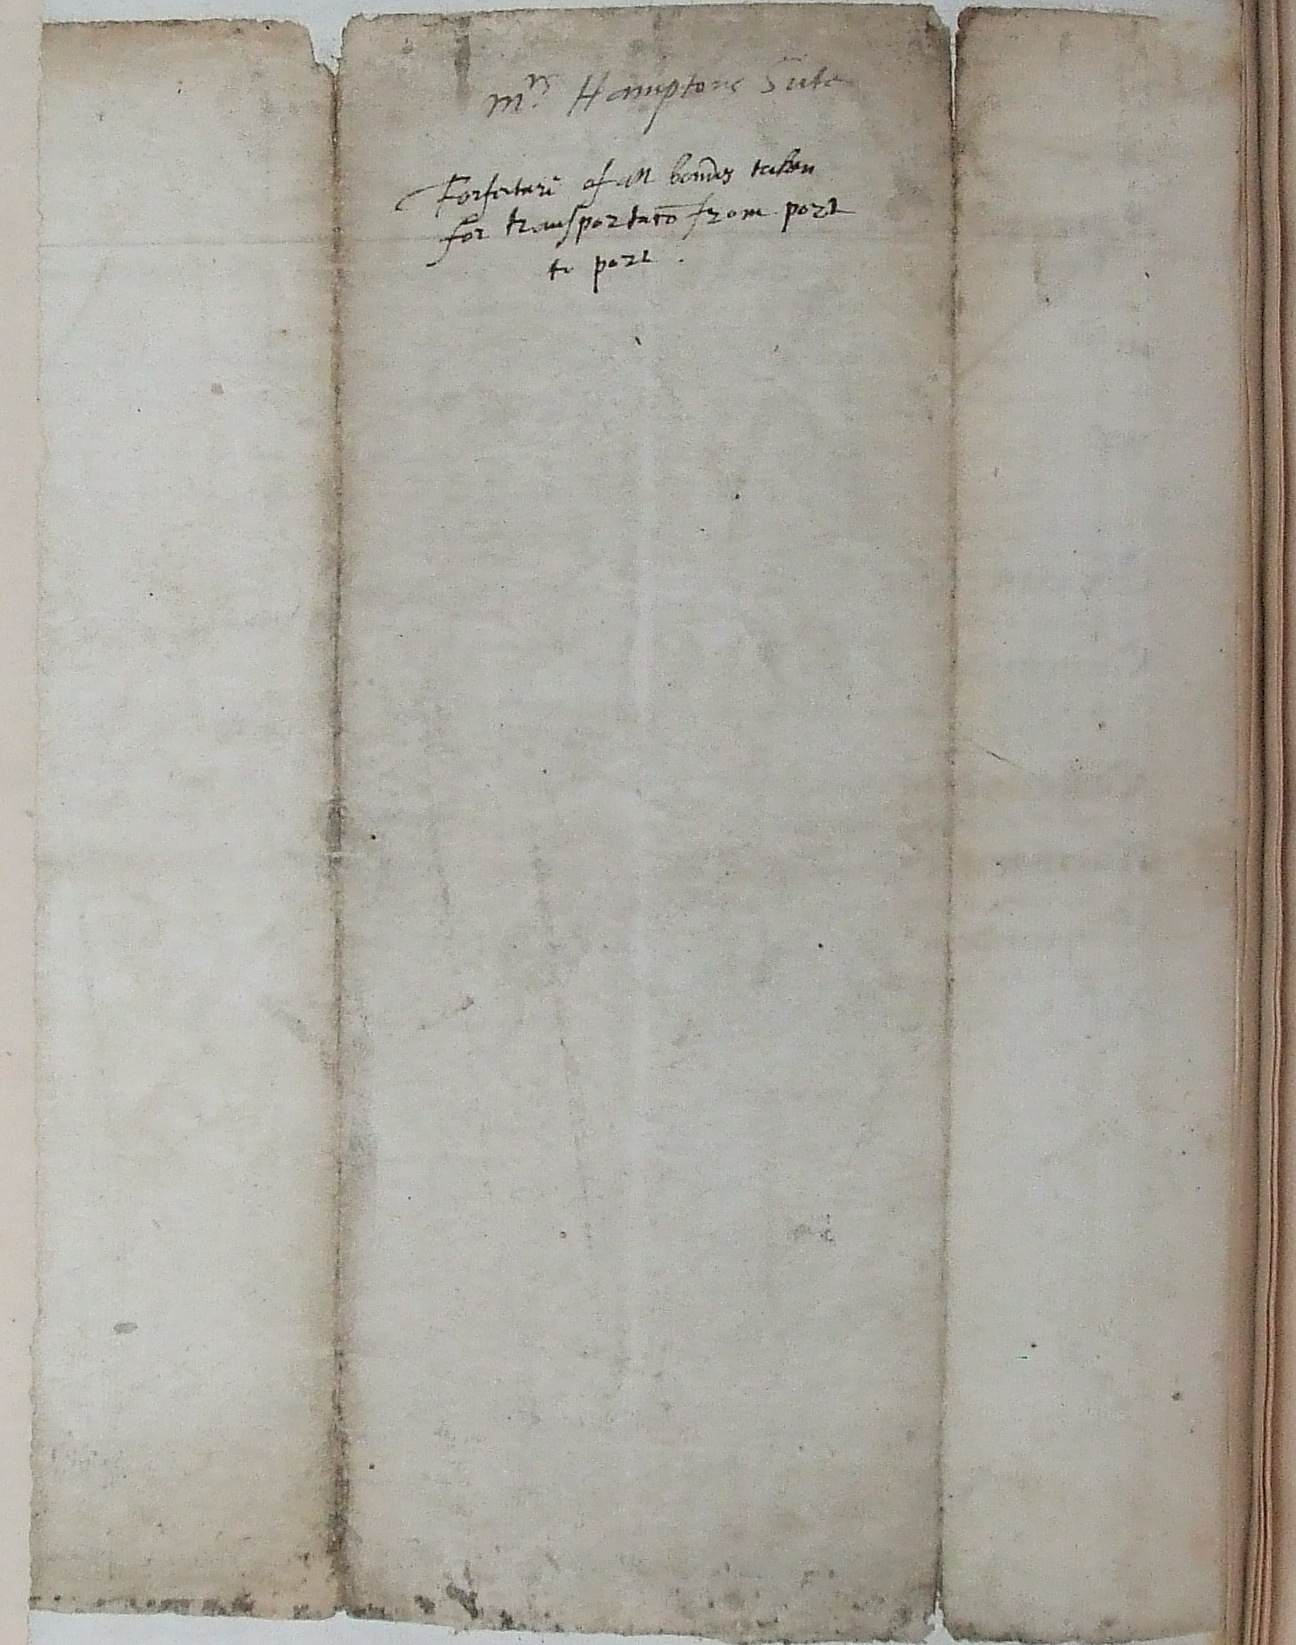 mrs Hamptons Sute
Forfeture of all bondes taken
for transportacõ from port
to port .